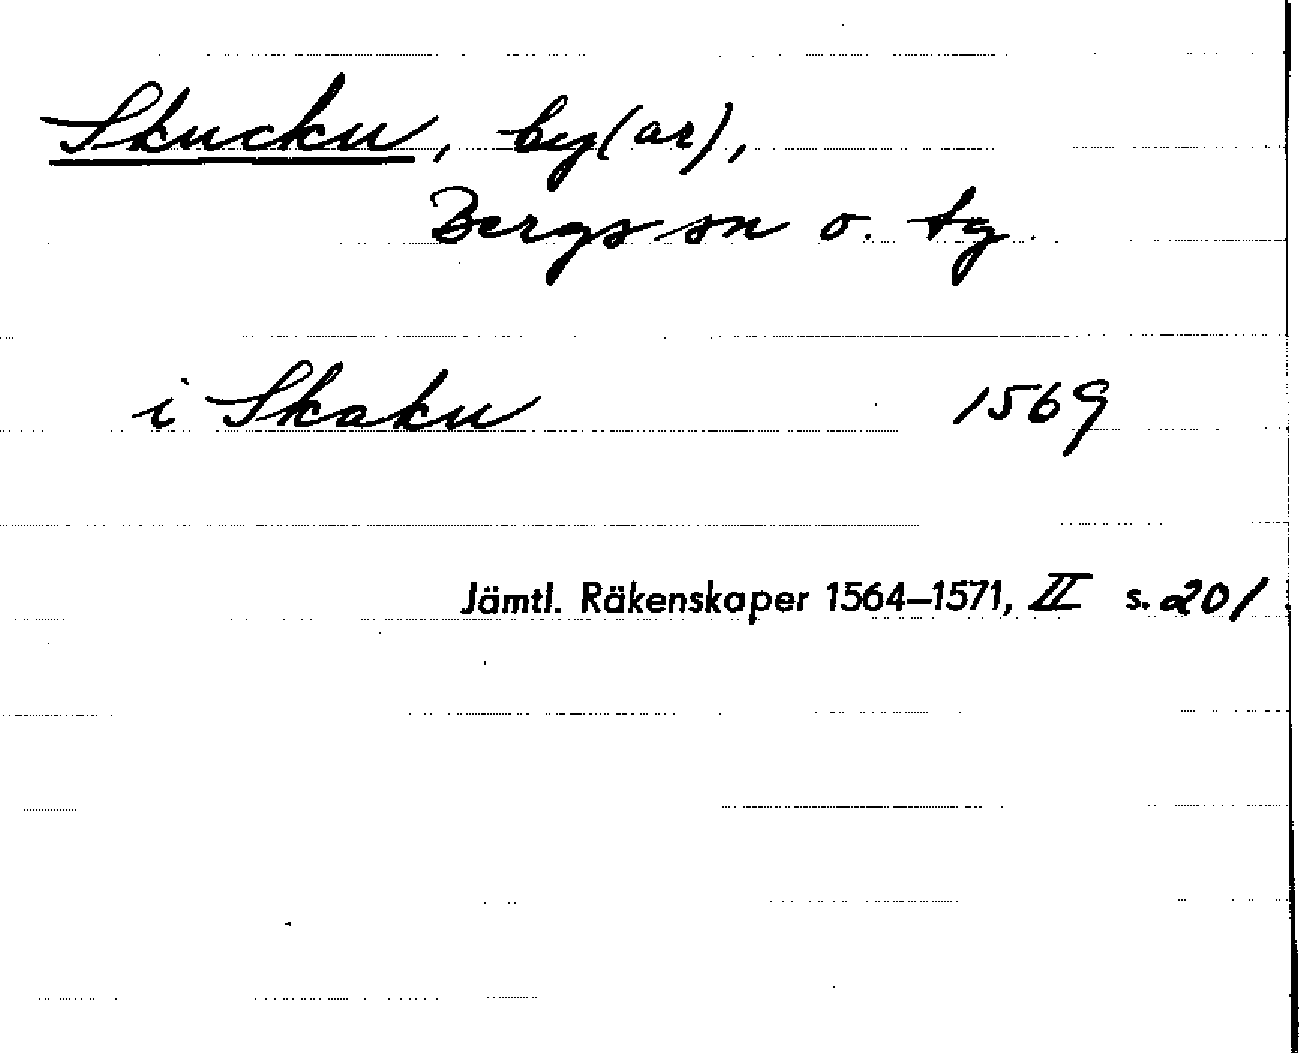 Skucku, by(ar),
Bergs sn o. tg
i Skaku 1569
Jämtl. Räkenskaper 1564–1571, II s. 201